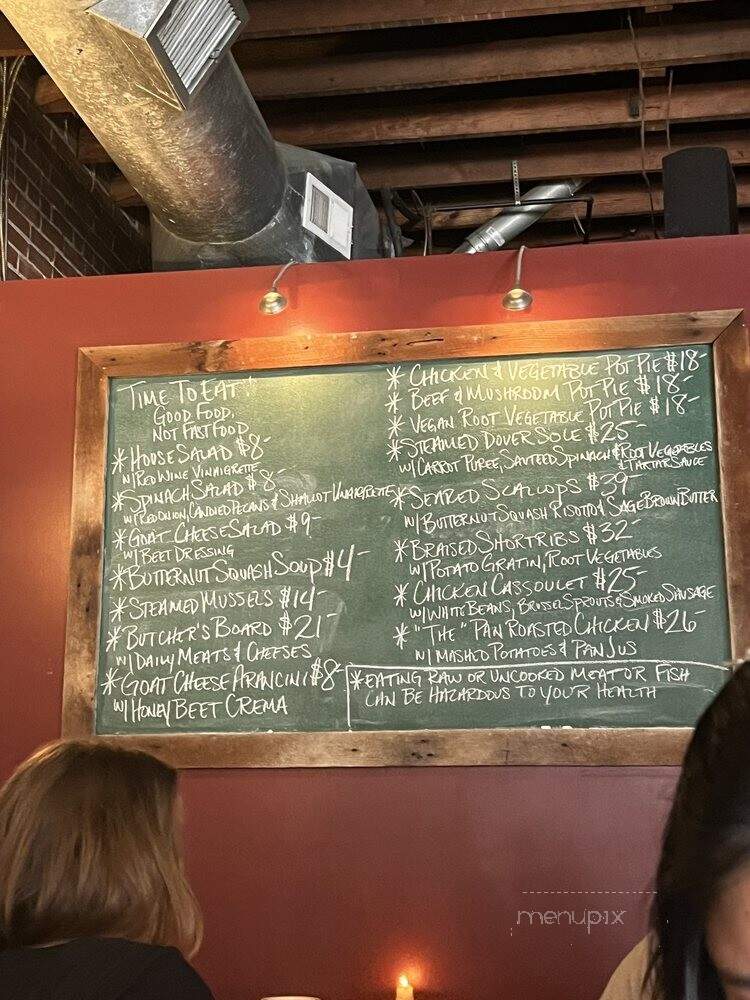 TIME TO EAT!
GOOD FOOD,
NOT FAST FOOD
* HOUSE SALAD $8-
W/ RED WINE VINAIGRETTE
* SPINACH SALAD $8-
W/ RED ONION, CANDIED PECANS & SHALLOT VINAIGRETTE
* GOAT CHEESE SALAD $9-
W/ BEET DRESSING
* BUTTERNUT SQUASH SOUP $4-
* STEAMED MUSSELS $14-
* BUTCHER'S BOARD $21-
W/ DAILY MEATS & CHEESES
* GOAT CHEESE ARANCINI $8-
W/ HONEY BEET CREMA
* CHICKEN & VEGETABLE POT PIE $18-
* BEEF & MUSHROOM POT PIE $18-
* VEGAN ROOT VEGETABLE POT PIE $18-
* STEAMED DOVER SOLE $25-
W/ CARROT PUREE, SAUTEED SPINACH & ROOT VEGETABLES
& TARTAR SAUCE
* SEARED SCALLOPS $39-
W/ BUTTERNUT SQUASH RISOTTO & SAGE BROWN BUTTER
* BRAISED SHORTRIBS $32-
W/ POTATO GRATIN, ROOT VEGETABLES
* CHICKEN CASSOULET $25-
W/ WHITE BEANS, BRUSSEL SPROUTS & SMOKED SAUSAGE
* "THE" PAN ROASTED CHICKEN $26-
W/ MASHED POTATOES & PAN JUS
* EATING RAW OR UNCOOKED MEAT OR FISH
CAN BE HAZARDOUS TO YOUR HEALTH
menupix